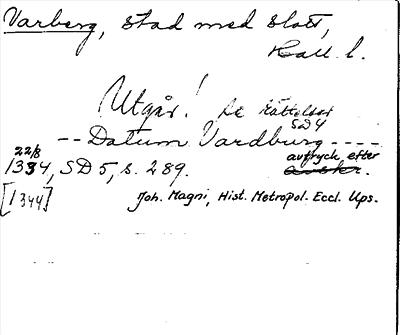 Varberg, stad med slott,
Hall. l.
Utgår! Se Rättelser
SD 4
-- Datum Vardburg ----
22/8
1334, SD 5, s. 289. avtryck efter
[1344]
Joh. Magni, Hist. Metropol. Eccl. Ups.